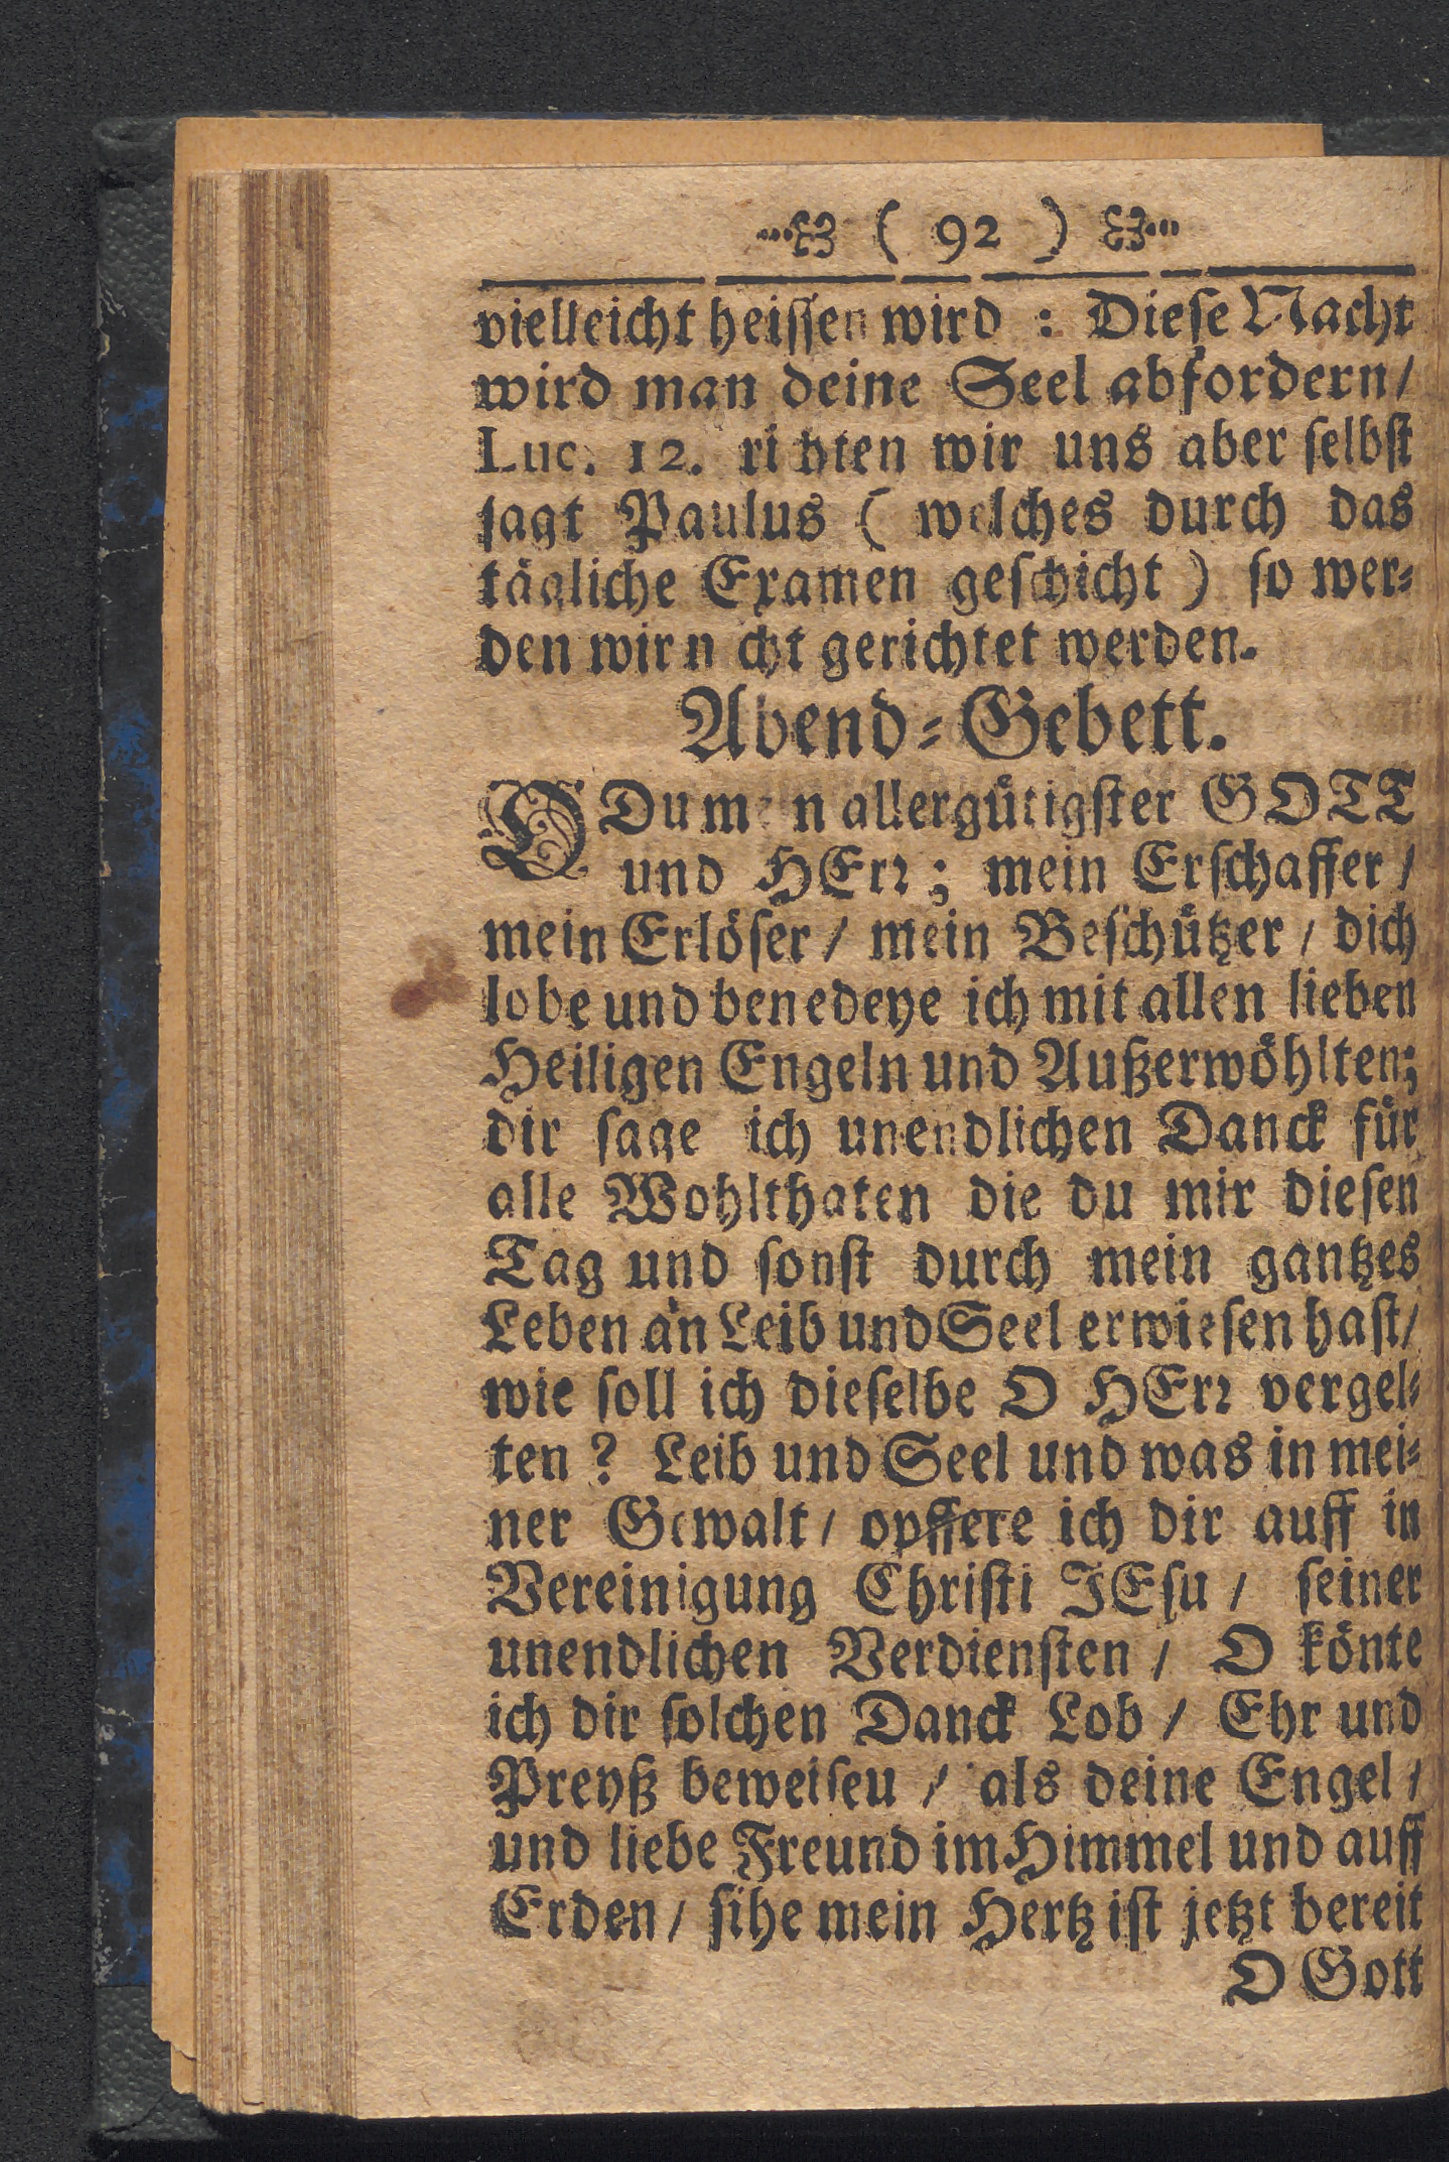 ( 92 )
vielleicht heissen wird : Diese Nacht
wird man deine Seel abfordern/
Luc. 12. richten wir uns aber selbst
sagt Paulus ( welches durch das
tägliche Examen geschicht ) so wer⸗
den wir nicht gerichtet werden.
Abend⸗Gebett.
O Du mein allergütigster GOTT
und HErr ; mein Erschaffer /
mein Erlöser / mein Beschützer / dich
lobe und benedeye ich mit allen lieben
Heiligen Engeln und Außerwöhlten;
dir sage ich unendlichen Danck für
alle Wohlthaten die du mir diesen
Tag und sonst durch mein gantzes
Leben an Leib und Seel erwiesen hast/
wie soll ich dieselbe O HErr vergel⸗
ten ? Leib und Seel und was in mei⸗
ner Gewalt / opffere ich dir auff in
Vereinigung Christi JEsu / seiner
unendlichen Verdiensten / O könte
ich dir solchen Danck Lob / Ehr und
Preyß beweiseu / als deine Engel /
und liebe Freund im Himmel und auff
Erden / sihe mein Hertz ist jetzt bereit
O Gott